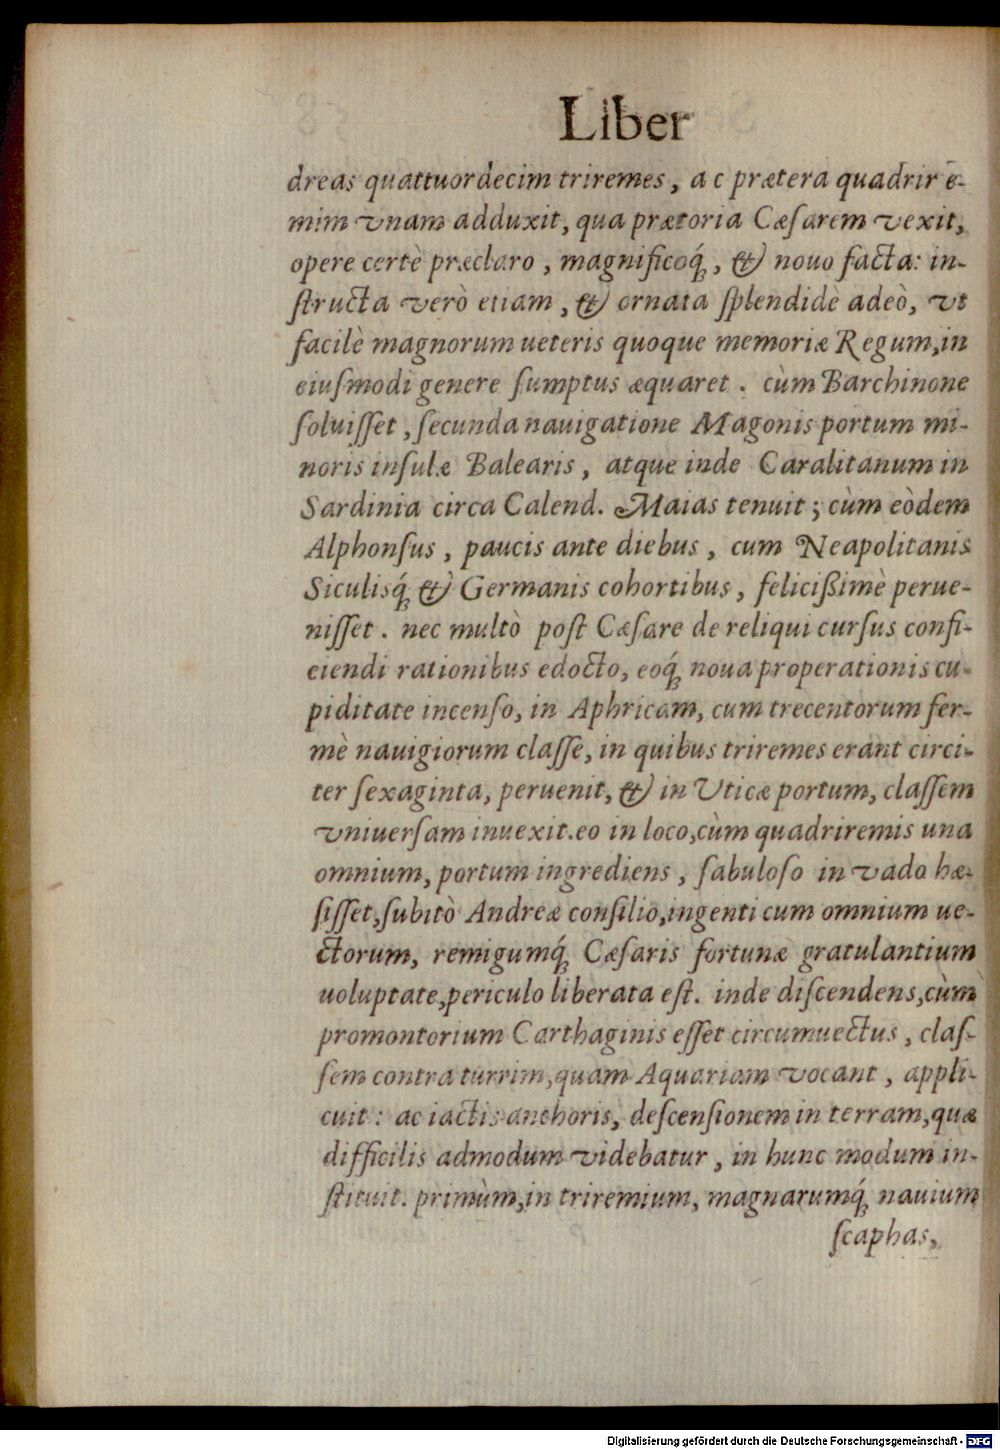 Liber
dreas quattuordecim triremes, ac prætera quadrirē-
mim vnam adduxit, qua prætoria Cæſarem vexit,
opere certè præclaro, magnificoq́;, & nouo facta: in-
ſtructa verò etiam, & ornata ſplendidè adeò, vt
facilè magnorum ueteris quoque memoriæ Regum, in
eiuſmodi genere ſumptus æquaret. cùm Barchinone
ſoluiſſet, ſecunda nauigatione Magonis portum mi-
noris inſulæ Balearis, atque inde Caralitanum in
Sardinia circa Calend. Maias tenuit; cùm eòdem
Alphonſus, paucis ante diebus, cum Neapolitanis
Siculisq́; & Germanis cohortibus, feliciſsimè perue-
niſſet. nec multò poſt Cæſare de reliqui curſus confi-
ciendi rationibus edocto, eoq́; noua properationis cu-
piditate incenſo, in Aphricam, cum trecentorum fer-
mè nauigiorum claſſe, in quibus triremes erant circi-
ter ſexaginta, peruenit, & in Vticæ portum, claſſem
vniuerſam inuexit. eo in loco, cùm quadriremis una
omnium, portum ingrediens, ſabuloſo in vado hæ-
ſiſſet, ſubitò Andreæ conſilio, ingenti cum omnium ue-
ctorum, remigumq́; Cæſaris fortunæ gratulantium
uoluptate, periculo liberata eſt. inde diſcendens, cùm
promontorium Carthaginis eſſet circumuectus, claſ-
ſem contra turrim, quam Aquariam vocant, appli-
cuit: ac iactis anchoris, deſcenſionem in terram, quæ
difficilis admodum videbatur, in hunc modum in-
ſtituit. primùm, in triremium, magnarumq́; nauium
ſcaphas,
Digitalisierung gefördert durch die Deutsche Forschungsgemeinschaft - DFG